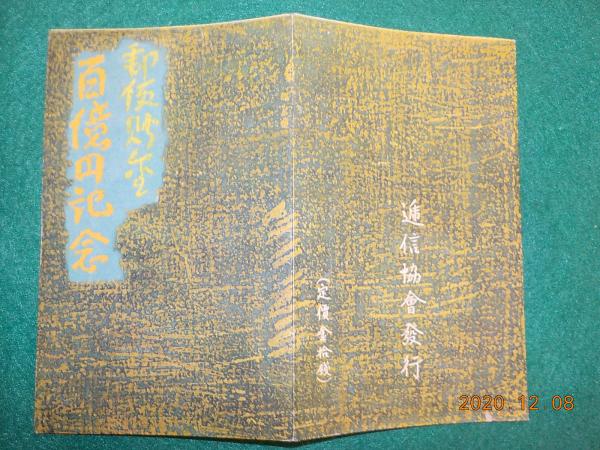 郵便貯金
百億円記念
逓信協會發行
(定價金拾錢)
2020.12.08